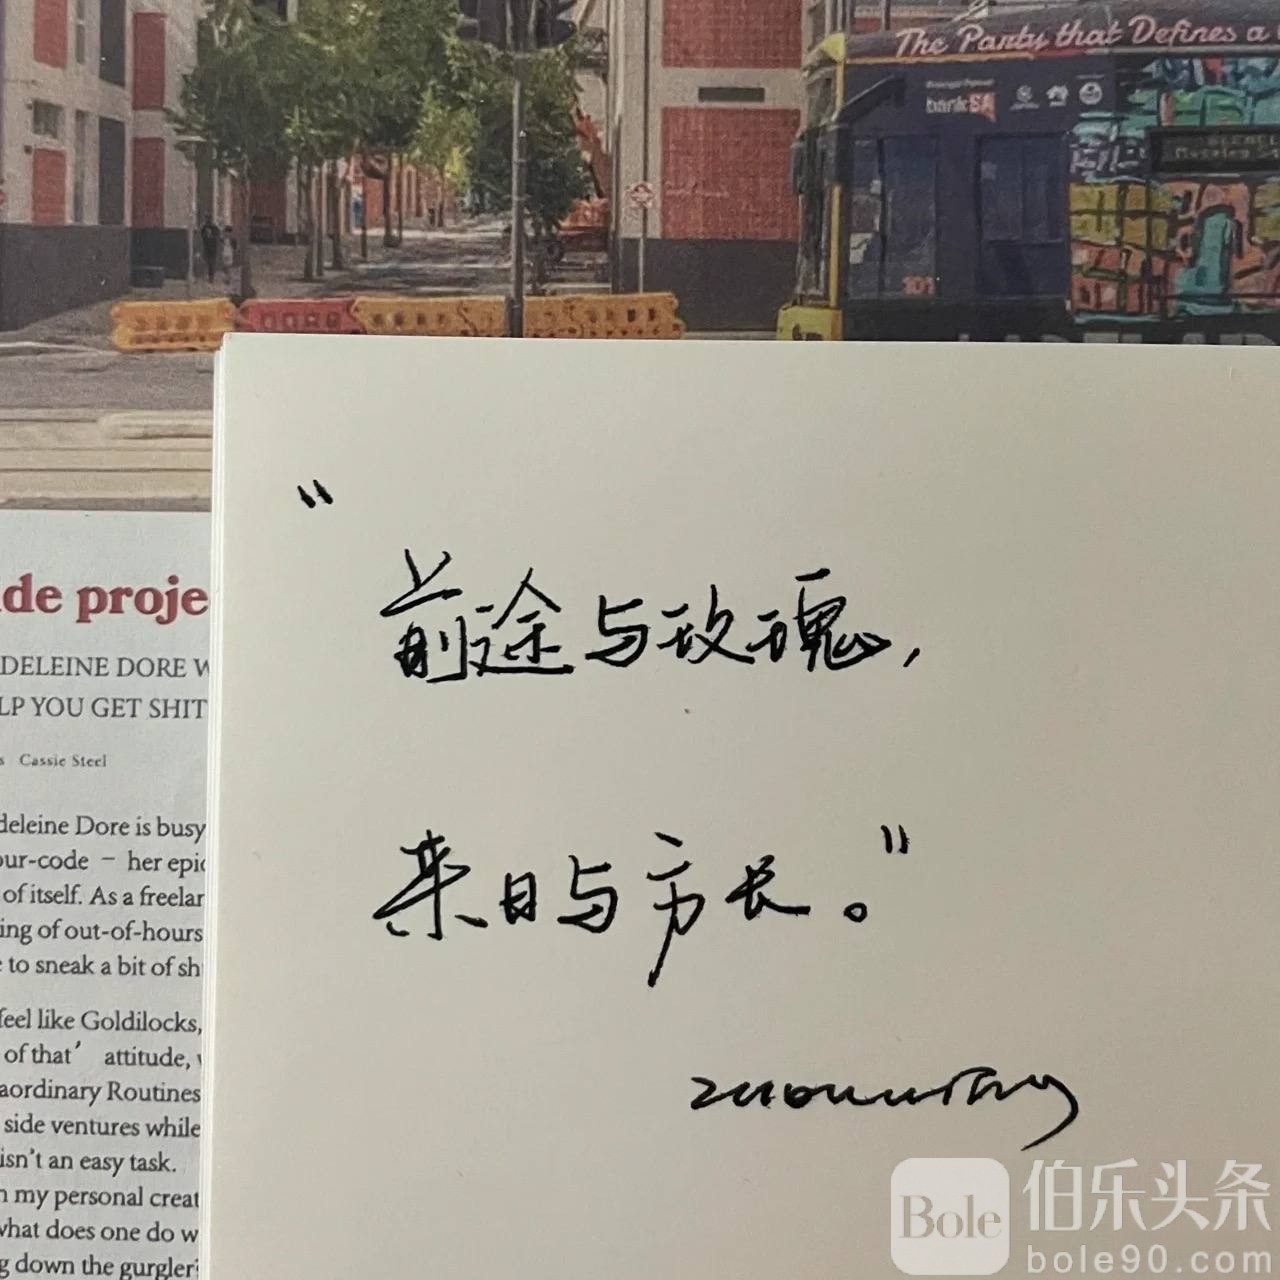 The Party that Defines a
bankSA
101
"
前途与玫瑰,
来日与方长。"
de proje
DELEINE DORE W
LP YOU GET SHIT
s Cassie Steel
deleine Dore is busy
our-code – her epic
of itself. As a freelar
ing of out-of-hours
to sneak a bit of sh
feel like Goldilocks,
of that' attitude,
aordinary Routines
side ventures while
isn't an easy task.
n my personal creat
what does one do w
g down the gurgler
Bole
伯乐头条
bole90.com